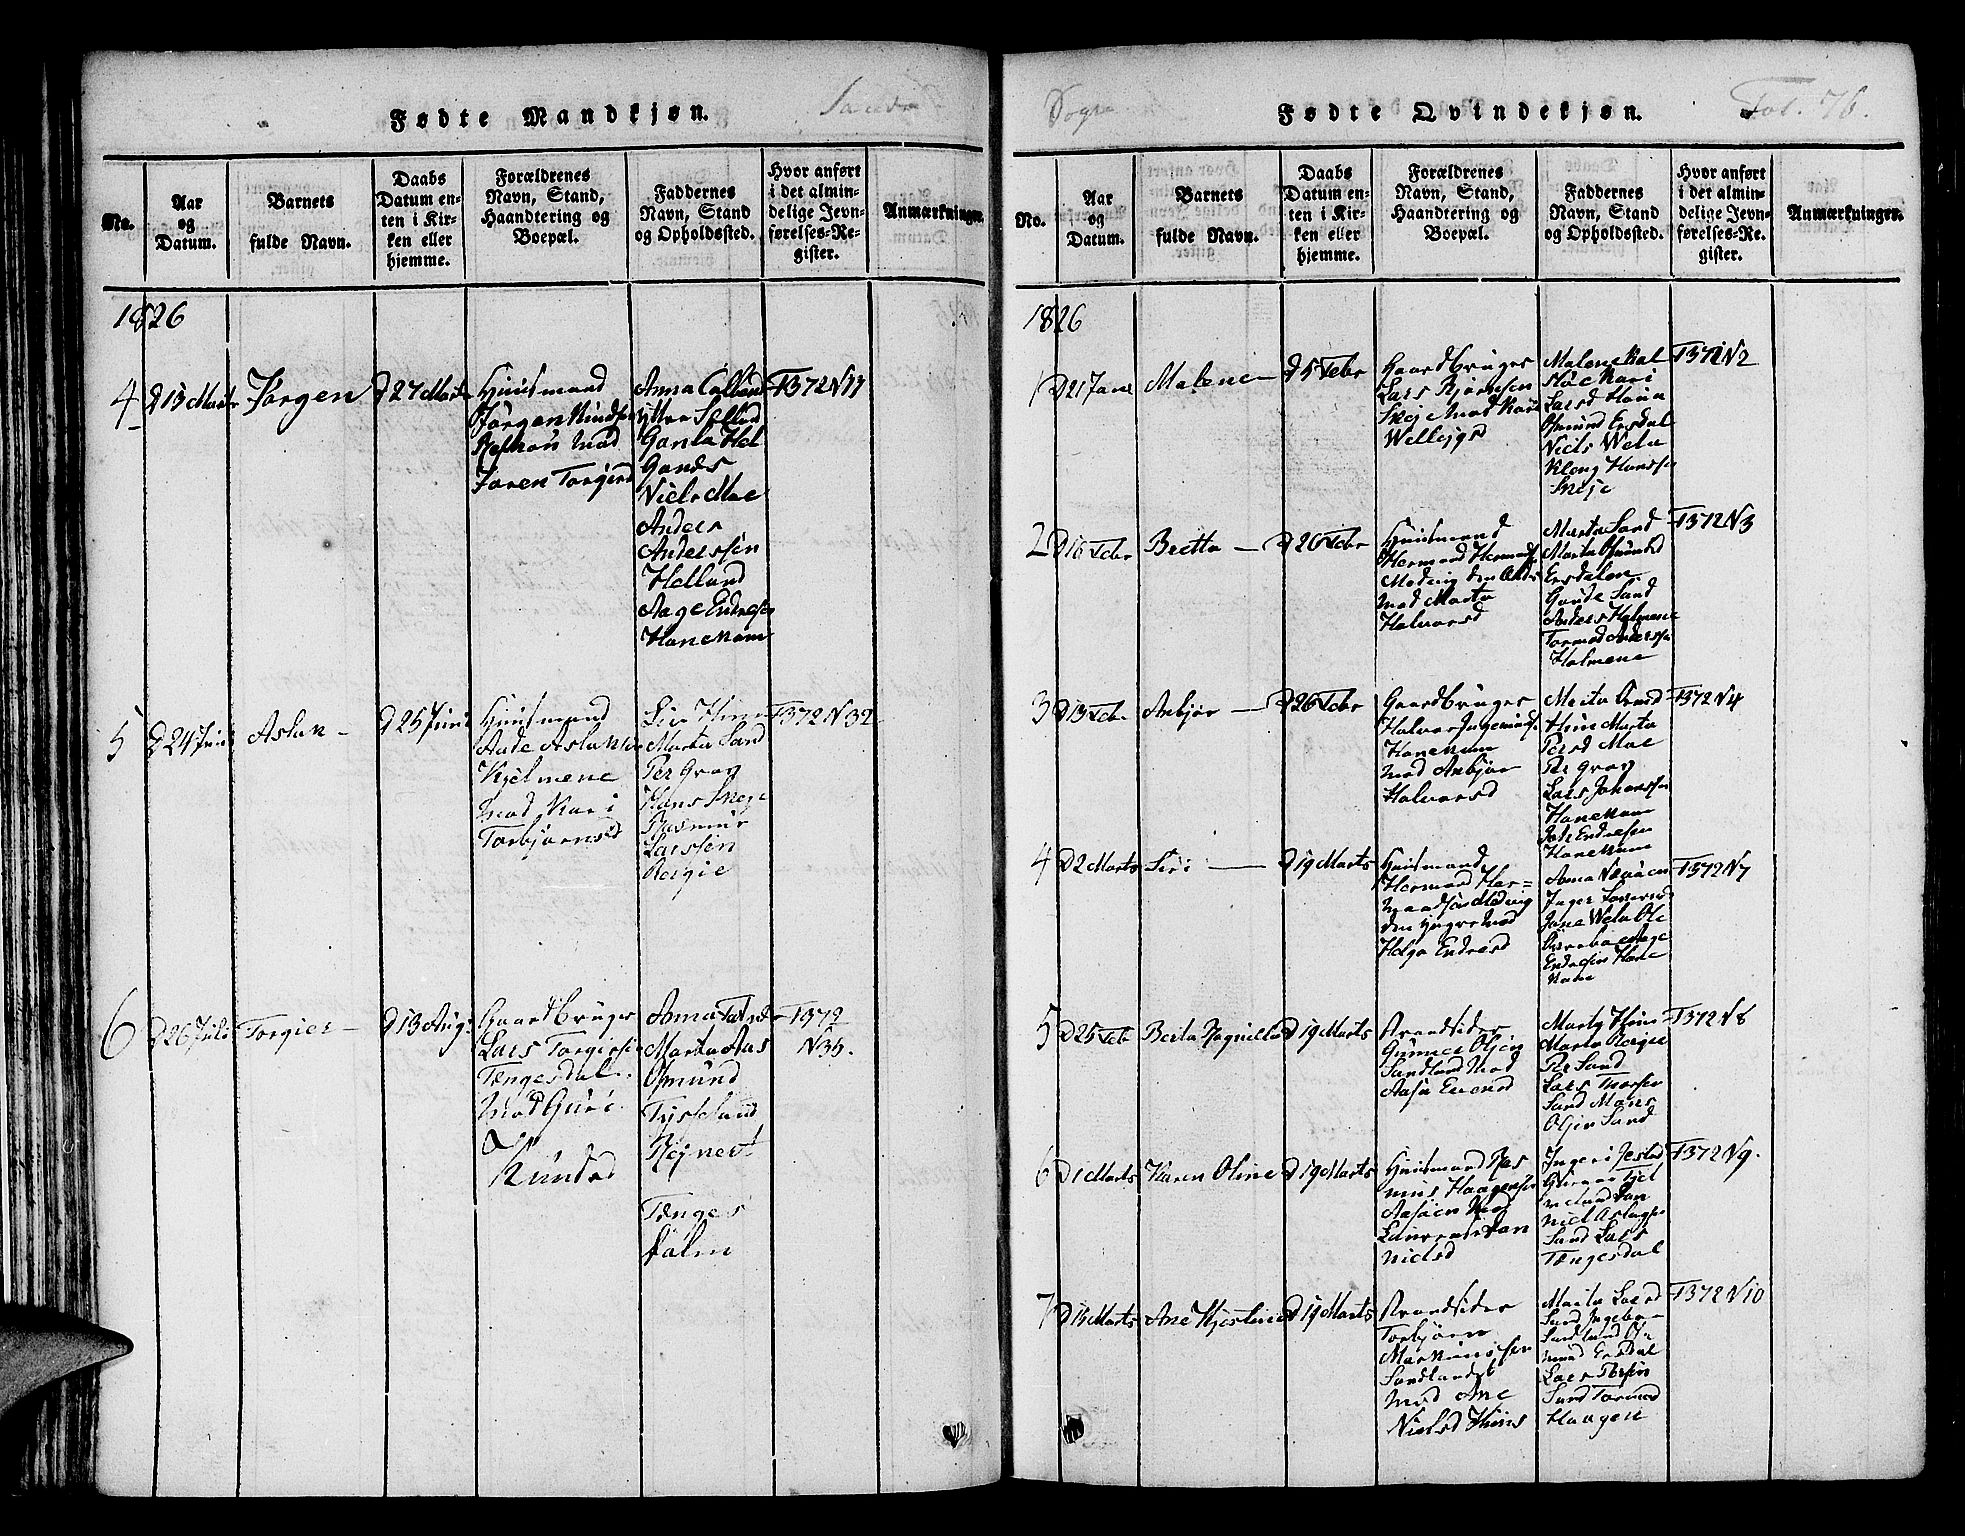 Fødte Mandkjøn.
No.
Aar og Datum.
Barnets fulde Navn.
Daabs Datum enten i Kirken eller hjemme.
Forældrenes Navn, Stand, Haandtering og Boepæl.
Faddernes Navn, Stand og Opholdssted.
Hvor anført i det almindelige Jevnførelses-Register.
Anmærkninger.
1826
4
D 13 Marts
Jørgen
D 27 Marts
Huusmand
Jørgen Knudsen
med
Joren Torgiersd
Anna
Ganla Hel
Gands
Niels Moe
Anders
Anderssøn
Helland
Aage Endresen
Hanekam
F 372 N 17
5
D 24 Juni
Aslak
D 25 Juni
Huusmand
Aade Aslaksen
Kjelmene
med Kari
Torbjørnsd
Siri Hiim
Marta Sand
Per Grav
Hans Skeje
Rasmus
Larssøn
Reigie
F 372 N 32
6
D 26 Juli
Torgier
D 13 Aug:
Gaardbruger
Lars Torgiersen
Tængesdal
med Guri
Knudsd
Anna
Marta Aas
Osmund
Tysseland
Rejnert
Tænges
dalen
F 372
N 35.
Fødte Qvindekjøn.
Fol. 76.
No.
Aar og Datum.
Barnets fulde Navn.
Daabs Datum enten i Kirken eller hjemme.
Forældrenes Navn, Stand, Haandtering og Boepæl.
Faddernes Navn, Stand og Opholdssted.
Hvor anført i det almindelige Jevnførelses-Register.
Anmærkninger.
1826
1
D 21 Jan
Malene
D 5 Febr
Gaardbruger
Lars Bjørnsen
Skeje med Kari
Malene
Kari
Larsd Hana
Osmund Ersdal
Niels Wela
Hanssen
Skeje
F 371 N 2
2
D 16 Febr
Britta
D 26 Febr
Huusmand
Hermand Hermands
Medvig den Ældr
med Marta
Halvorsd
Marta Sand
Marta Osmundsd
Ersdalen
Gaude Sand
Anders Holmene
Tormod Anderssen
Holmene
F 372 N 3
3
D 13 Febr
Anbjør
D 26 Febr
Gaardbruger
Halvor Ingemunds
Hanekam
med Anbjør
Halvorsd
Marta
Hiim Marta
Persd Moe
Per Grav
Lars Johanssen
Hanekam
Endresen
Hanekam
F 372 N 4
4
D 2 Marts
Siri
D 19 Marts
Huusmand
Hermand Her=
mandsen Medvig
den yngre med
Helga Endresd
Anna
Inger
Jane Wela Ole
Aage
Endresen Hane
kam
F 372 N 7
5
D 25 Feb
Berta Pernille
D 19 Marts
Strandsider
Gunner Olsen
Sandland med
Aasa Evensd
Marta Hiim
Marta Reigie
Per Sand
Lars Thorsen
Sand Mons
Olsen Sand
F 372 N 8
6
D 1 Marts
Karen Oline
D 19 Marts
Huusmand Ras
mus Haagensen
Aasaen med
Nielsd
Ingeri
Sand Lars
Tængesdal
F 372 N 9.
7
D 13 Marts
Ane Kjestine
D 19 Marts
Strandsider
Torbjørn
Markussen
Sandlandet
med Ane
Nielsd Hiim
Marta Larsd
Sand Ingebor
Sandland Os
mund Ersdal
Lars Torsen
Sand Tormod
Haagen
F 372 N 10